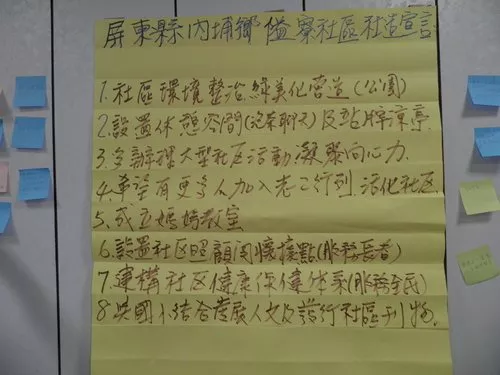 屏東縣內埔鄉隘寮社區社造宣言
1.社區環境整治綠美化營造(公園)
2.設置休憩空間(泡茶聊天)及站牌涼亭.
3.舉辦大型社區活動凝聚向心力.
4.希望有更多人加入志工行列.活化社區.
5.成立媽媽教室
6.設置社區照顧關懷據點(服務長者)
7.建構社區健康保健体系(服務全民)
8.與國小結合發展人文及發行社區刊物.